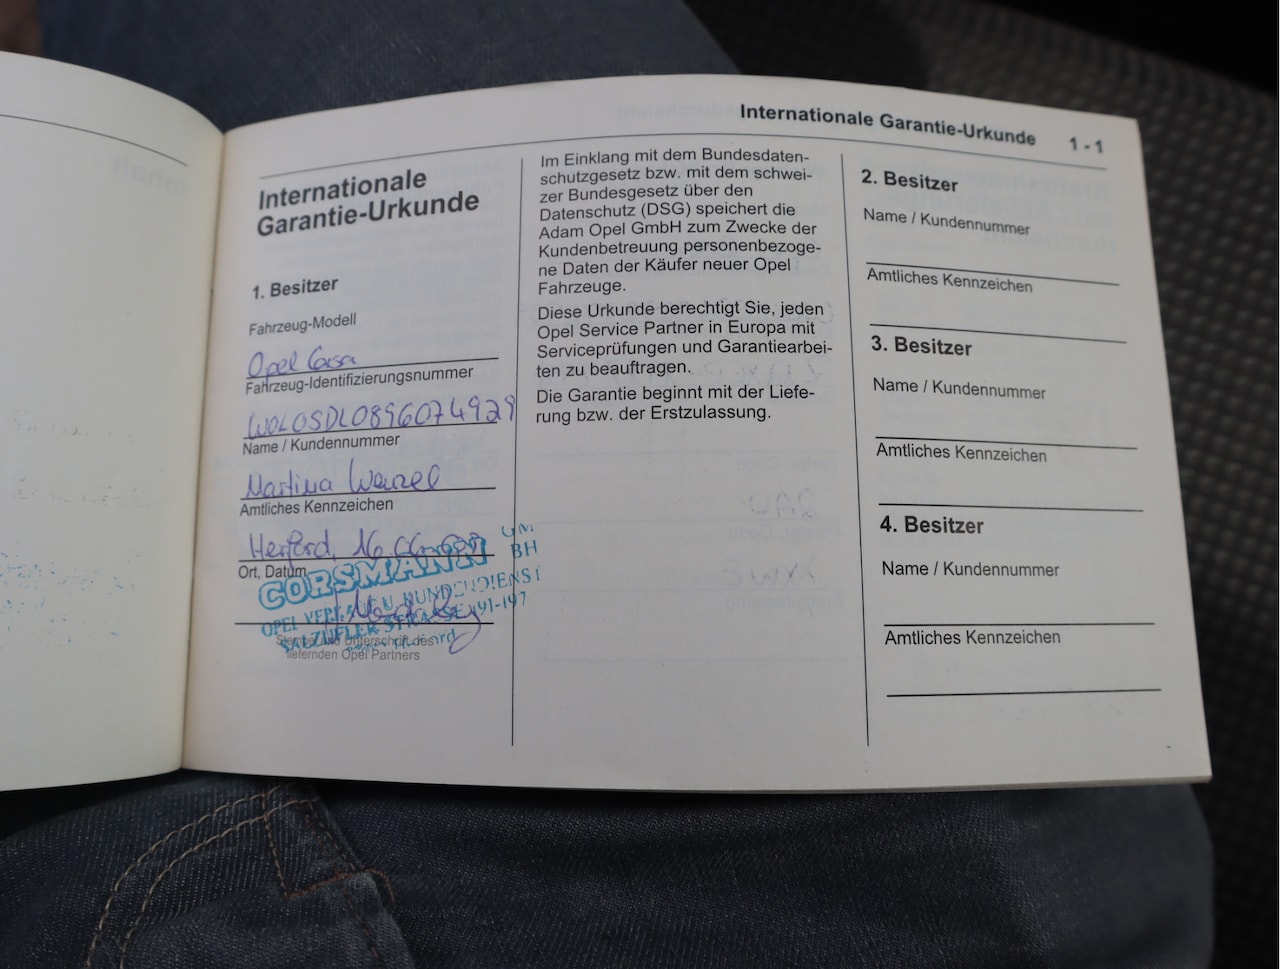 Internationale Garantie-Urkunde 1 - 1
Internationale
Garantie-Urkunde
1. Besitzer
Fahrzeug-Modell
Opel Corsa
Fahrzeug-Identifizierungsnummer
W0L0SDL0896074929
Name / Kundennummer
Martina Wenzel
Amtliches Kennzeichen
Herford, 16.
Ort, Datum
CORSMANN GMBH
OPEL VERKAUF U. KUNDENDIENST
SALZUFLER STRASSE 191-197
Stempel und Unterschrift des
liefernden Opel Partners
Im Einklang mit dem Bundesdaten-
schutzgesetz bzw. mit dem schwei-
zer Bundesgesetz über den
Datenschutz (DSG) speichert die
Adam Opel GmbH zum Zwecke der
Kundenbetreuung personenbezoge-
ne Daten der Käufer neuer Opel
Fahrzeuge.
Diese Urkunde berechtigt Sie, jeden
Opel Service Partner in Europa mit
Serviceprüfungen und Garantiearbei-
ten zu beauftragen.
Die Garantie beginnt mit der Liefe-
rung bzw. der Erstzulassung.
2. Besitzer
Name / Kundennummer
Amtliches Kennzeichen
3. Besitzer
Name / Kundennummer
Amtliches Kennzeichen
4. Besitzer
Name / Kundennummer
Amtliches Kennzeichen